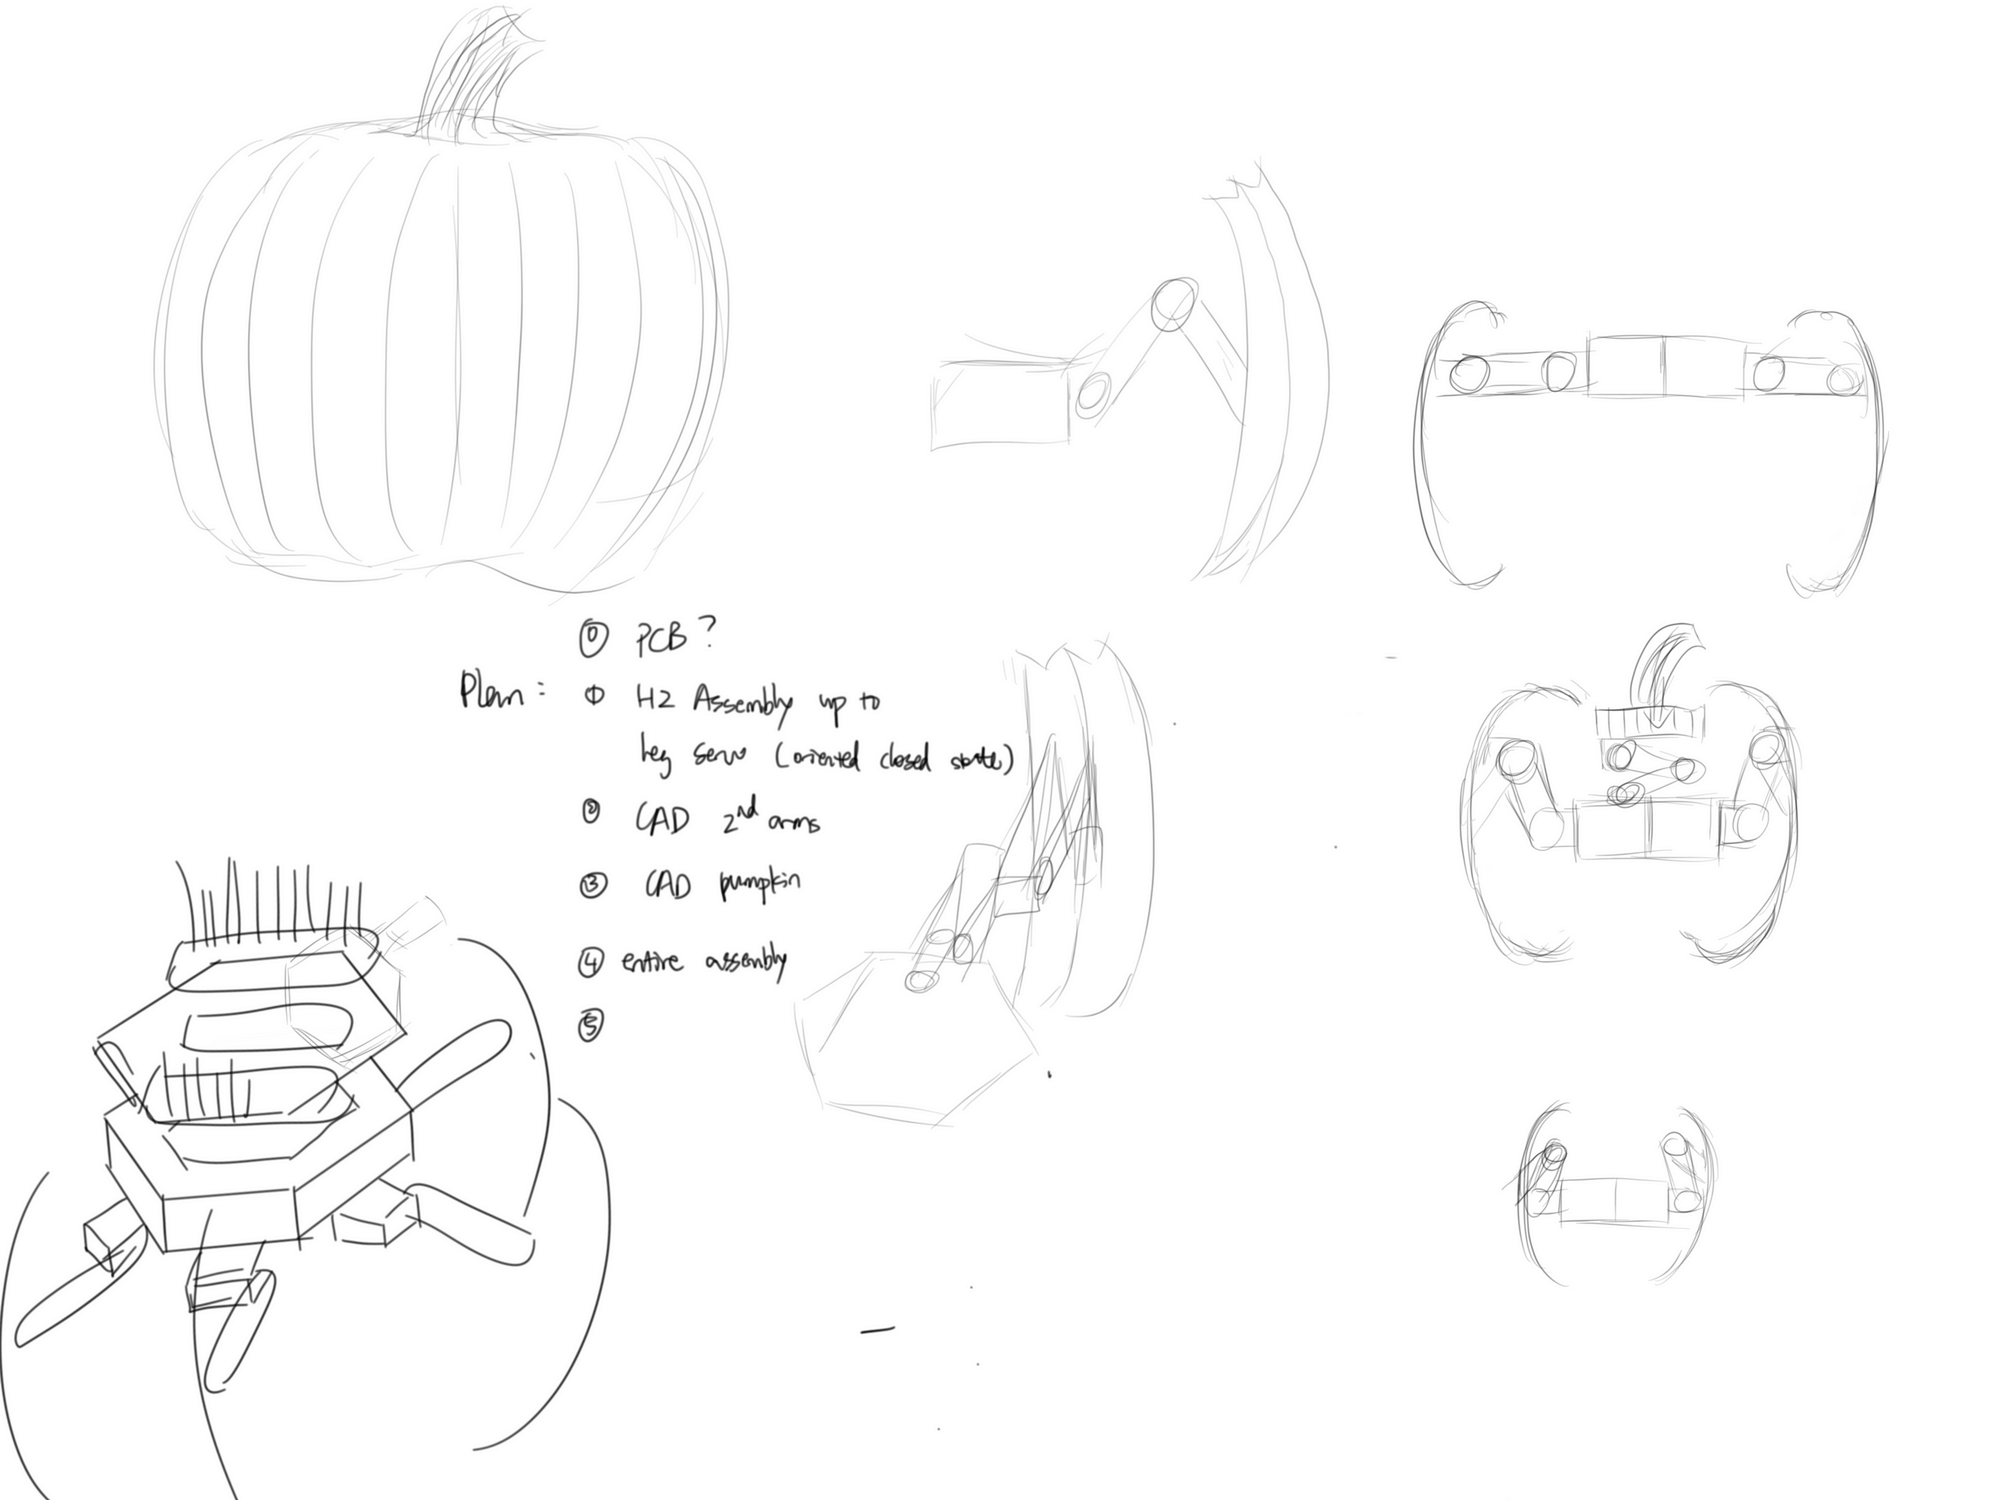 ⓪ PCB?
Plan: ① H2 Assembly up to
leg servo (oriented closed state)
② CAD 2nd arms
③ CAD pumpkin
④ entire assembly
⑤